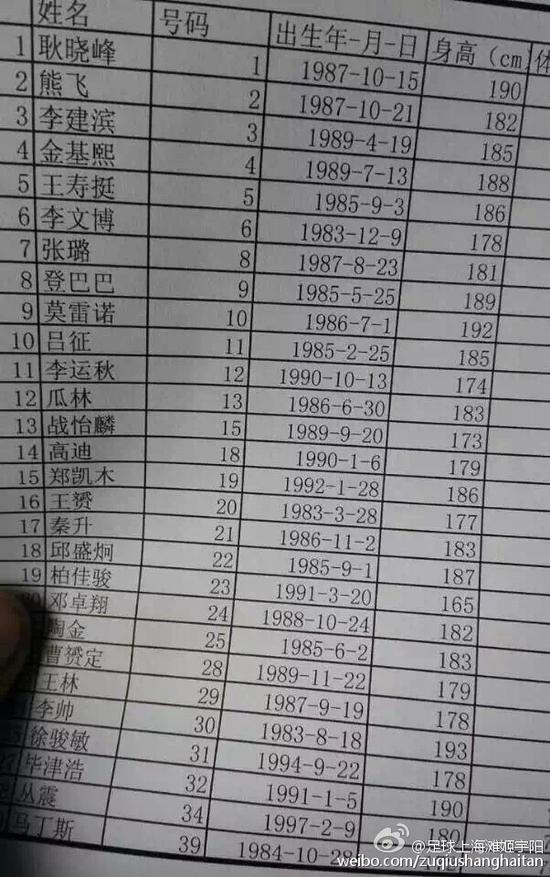 姓名 号码 出生年-月-日 身高（cm
1 耿晓峰 1 1987-10-15 190
2 熊飞 2 1987-10-21 182
3 李建滨 3 1989-4-19 185
4 金基熙 4 1989-7-13 188
5 王寿挺 5 1985-9-3 186
6 李文博 6 1983-12-9 178
7 张璐 8 1987-8-23 181
8 登巴巴 9 1985-5-25 189
9 莫雷诺 10 1986-7-1 192
10 吕征 11 1985-2-25 185
11 李运秋 12 1990-10-13 174
12 瓜林 13 1986-6-30 183
13 战怡麟 15 1989-9-20 173
14 高迪 18 1990-1-6 179
15 郑凯木 19 1992-1-28 186
16 王赟 20 1983-3-28 177
17 秦升 21 1986-11-2 183
18 邱盛炯 22 1985-9-1 187
19 柏佳骏 23 1991-3-20 165
邓卓翔 24 1988-10-24 182
陶金 25 1985-6-2 183
曹赟定 28 1989-11-22 179
王林 29 1987-9-19 178
李帅 30 1983-8-18 193
徐骏敏 31 1994-9-22 178
毕津浩 32 1991-1-5 190
丛震 34 1997-2-9 180
马丁斯 39 1984-10-28
@足球上海滩姬宇阳
weibo.com/zuqiushanghaitan